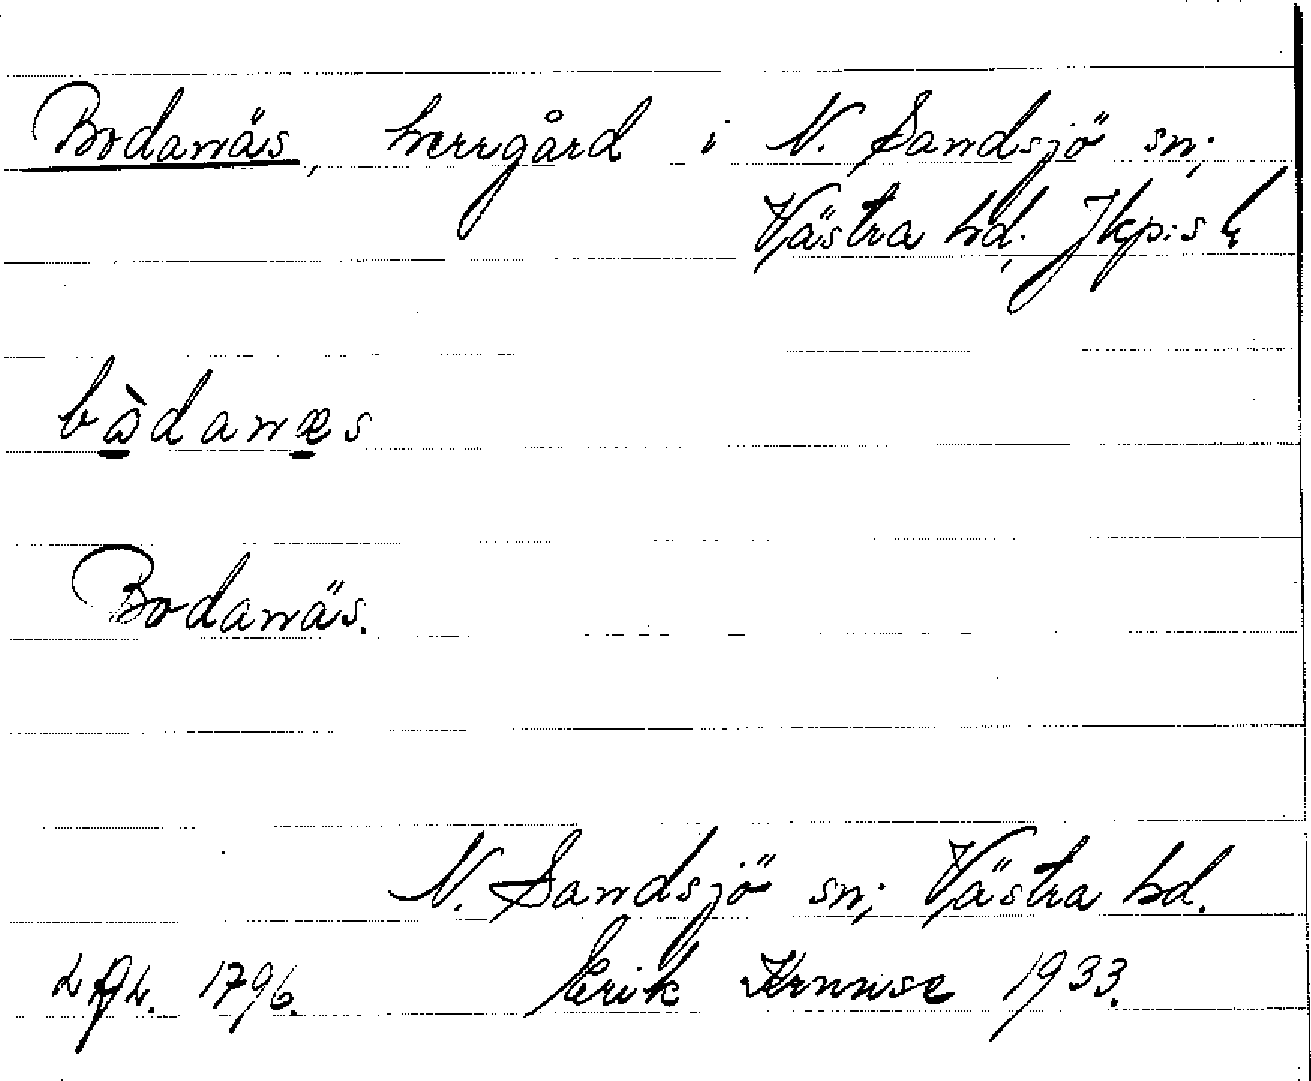 Bodanäs, herrgård i N. Sandsjö sn;
Västra hd; Jkp:s l
bòdanæs
Bodanäs.
N. Sandsjö sn; Västra hd.
1796. Erik Kruuse 1933.